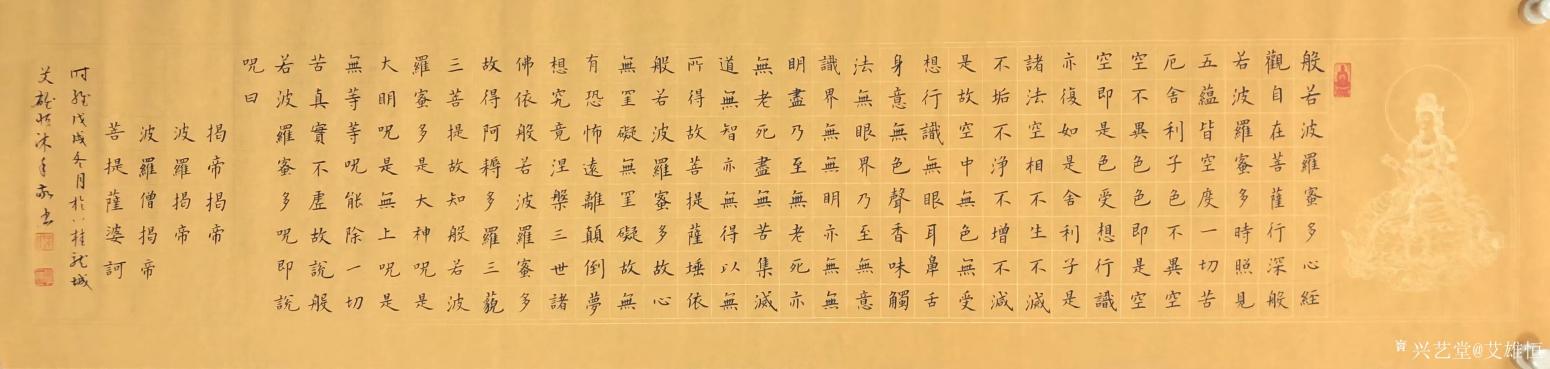 般若波羅蜜多心経
觀自在菩薩行深般
若波羅蜜多時照見
五蘊皆空度一切苦
厄舍利子色不異空
空不異色色即是空
空即是色受想行識
亦復如是舍利子是
諸法空相不生不滅
不垢不淨不增不減
是故空中無色無受
想行識無眼耳鼻舌
身意無色聲香味觸
法無眼界乃至無意
識界無無明亦無無
明盡乃至無老死亦
無老死盡無苦集滅
道無智亦無得以無
所得故菩提薩埵依
般若波羅蜜多故心
無罣礙無罣礙故無
有恐怖遠離顛倒夢
想究竟涅槃三世諸
佛依般若波羅蜜多
故得阿耨多羅三藐
三菩提故知般若波
羅蜜多是大神呪是
大明呪是無上呪是
無等等呪能除一切
苦真實不虛故說般
若波羅蜜多呪即說
呪曰
揭帝揭帝
波羅揭帝
波羅僧揭帝
菩提薩婆訶
時維戊戌冬月於八桂龍城
艾雄恒沐手敬書
兴艺堂@艾雄恒